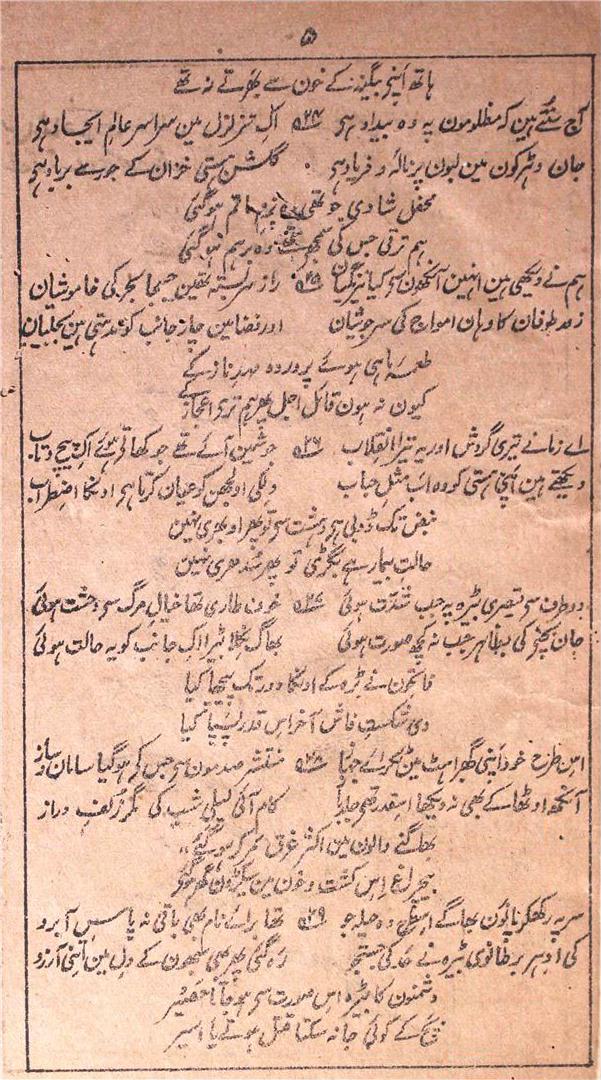 ۵
ہاتھ اپنے بیگنہ کے خون سے بھرتے نہ تھے
آج سنتے ہین کہ مظلومون پہ وہ بیداد ہو ۲۴ اک تزلزل مین سراسر عالم ایجاد ہو
جان دھڑکون مین لبون پر نالہ و فریاد ہو گلشن ہستی خزان کے جور سے برباد ہو
محفل شادی جو تھی وہ بزم ماتم ہو گئی
بزم ترتی جس کی وہ برہم ہو گئی
ہم نے دیکھی ہین انہین آنکھون سے کیا نیرنگیان ۲۵ راز سربستہ تھین جیجا سلجر کی خاموشیان
زمد طوفان کا وہان امواج کی سرجوشیان اور فضا مین چار جانب کوندتی ہین بجلیان
طعمہ ماہی ہوئے پروردہ مہد ناز کے
کیون نہ ہون قائل اجل پھر ہم ترے اعجاز کے
اے زمانے تیری گردش اور یہ تیرا انقلاب ۲۶ جوشمین آئے تھے جو کھاتے ہوئے اک پیچ و تاب
دیکھتے ہین اپنی ہستی کو وہ اب مثل حباب دلکی اولجھن کو عیان کرتا ہو اونکا اضطراب
نبض تک ڈوبی ہو دہشت سے تو پھر اوبھری نہین
حالت بیمار ہے بگڑی تو پھر سدھری نہین
دو طرف سے قیصری بیڑہ پہ جب شدت ہوئی ۲۷ خوف طاری تھا خیال مرگ سے وحشت ہوئی
جان بچنے کی بظاہر جب نہ کچھ صورت ہوئی بھاگ نکلا بیڑا اک جانب کو یہ حالت ہوئی
فاتحون نے بڑہ کے اونکا دور تک پیچھا کیا
دی شکست فاش آخر اس قدر پسپا کیا
اس طرح خود اپنی گھبراہٹ مین بحرائے جہاز ۲۸ منتشر صدمون سے جس کے ہو گیا سامان و ساز
آنکھ اوٹھا کے بھی نہ دیکھا اسقدر تھے جانباز کام آئی لیلی شب کی مگر زلف دراز
بھاگنے والون مین اکثر غرق مر کر ہو گئے
بیچراغ اس کشت و خون مین سیکڑون گھر ہو گئے
سر پہ رکھکر پانون بھاگے اسطرح وہ حیلہ جو ۲۹ تھا برائے نام بھی باقی نہ پاس آبرو
کی اودہر برطانوی بیڑہ نے حد کی جستجو رہ گئی پھر بھی سبھون کے دل مین اتنی آرزو
دشمنون کا بیڑہ اس صورت سے ہو جاتا حصیر
بچ کے کوئی جا نہ سکتا قتل ہوتے یا اسیر